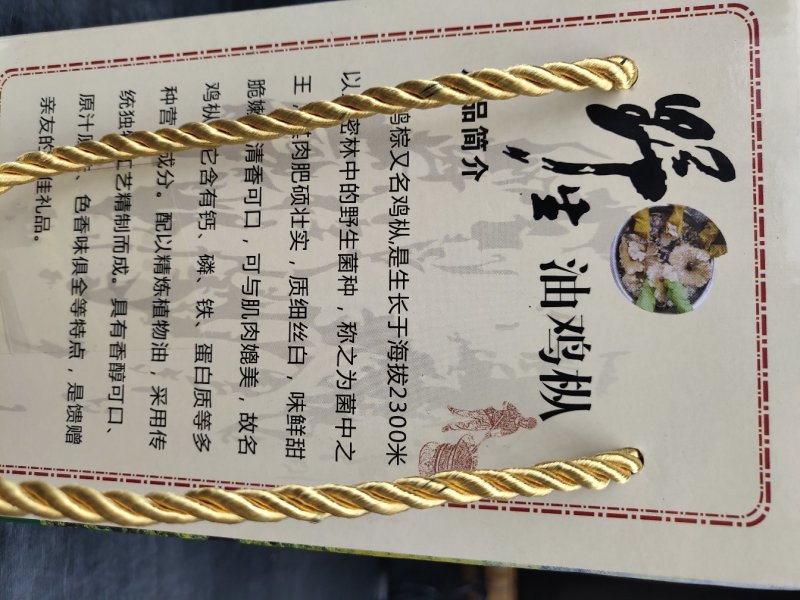 野生油鸡枞
品简介
鸡棕又名鸡枞,是生长于海拔2300米
以密林中的野生菌种，称之为菌中之
王，其肉肥硕壮实，质细丝白，味鲜甜
脆嫩清香可口，可与肌肉媲美，故名
鸡枞它含有钙、磷、铁、蛋白质等多
种营成分。配以精炼植物油，采用传
统独特工艺精制而成。具有香醇可口、
原汁、色香味俱全等特点，是馈赠
亲友的佳礼品。